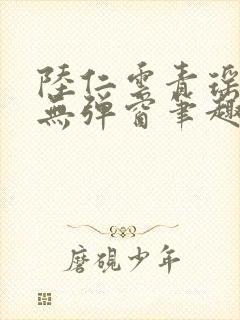 陸仁雲青瑤
無彈窗筆趣
磨硯少年